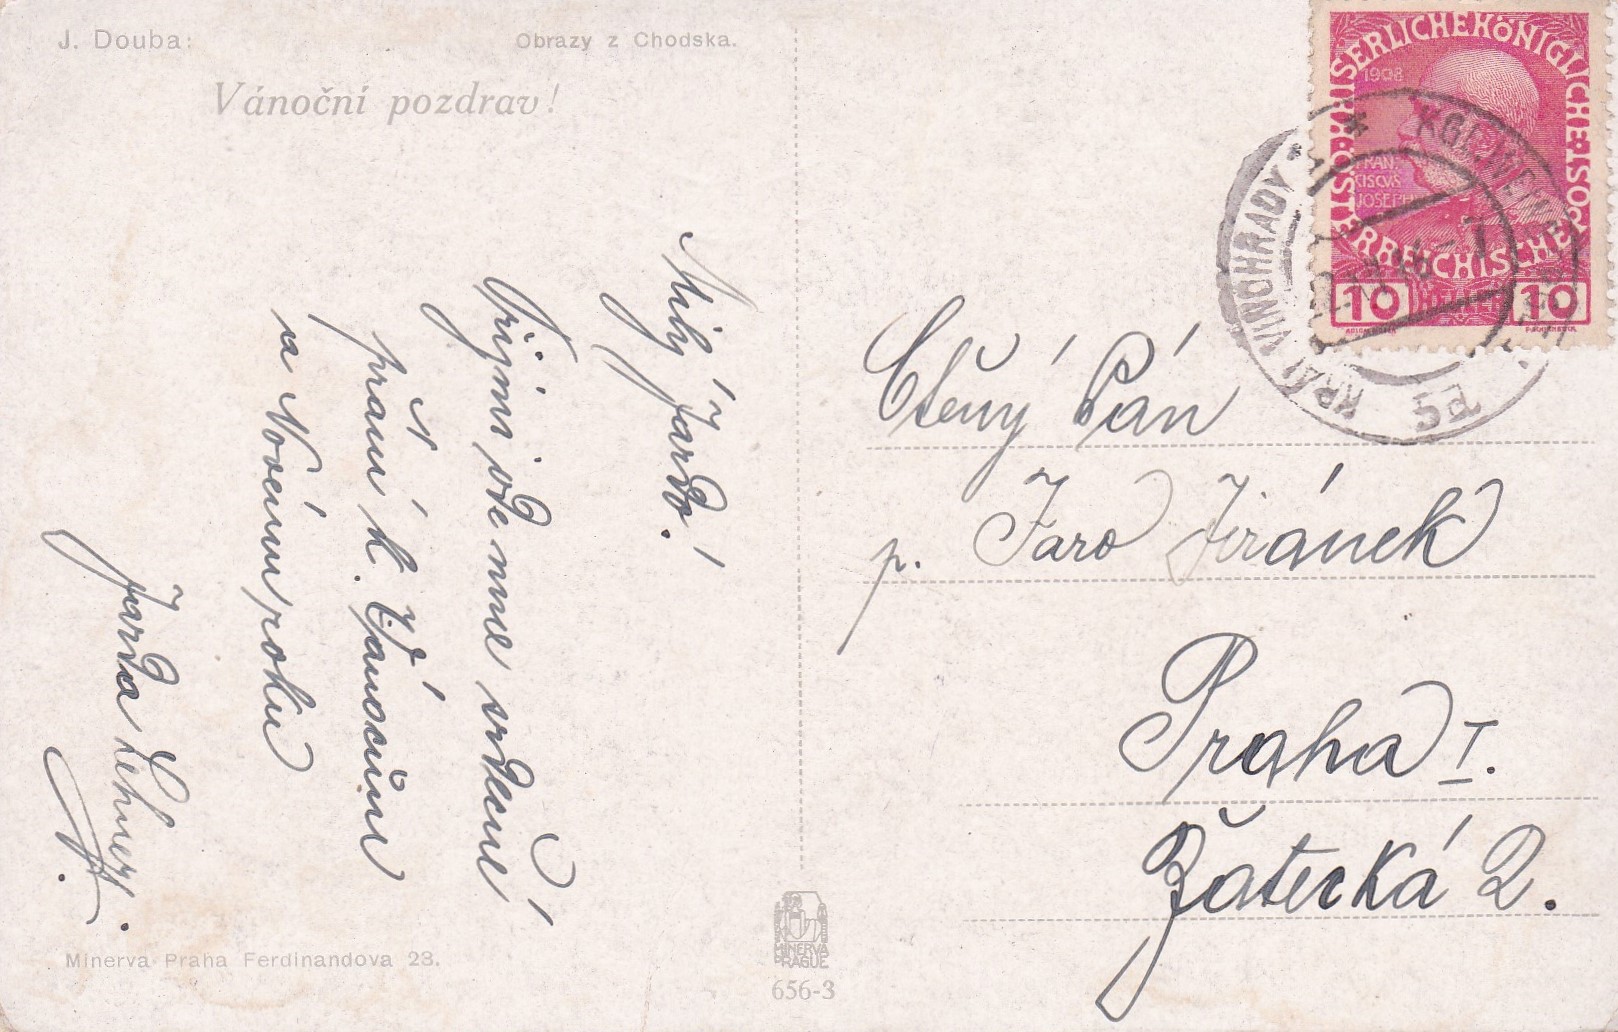 J. Douba:
Obrazy z Chodska.
Vánoční pozdrav!
Milý Jardo!
Přijmi ode mne srdečné
přání k Vánocům
a Novému roku
Jarda Lehner
Ctěný Pán
p. Jaro Jiránek
Praha I.
Žatecká 2.
KAISERLICHE KÖNIGLICHE ÖSTERREICHISCHE POST
1908
FRANCISCVS JOSEPH I
10 HELLER 10
KRÁL. VINOHRADY 1
KGL. WEINBERGE
MINERVA
PRAGUE
656-3
Minerva Praha Ferdinandova 28.